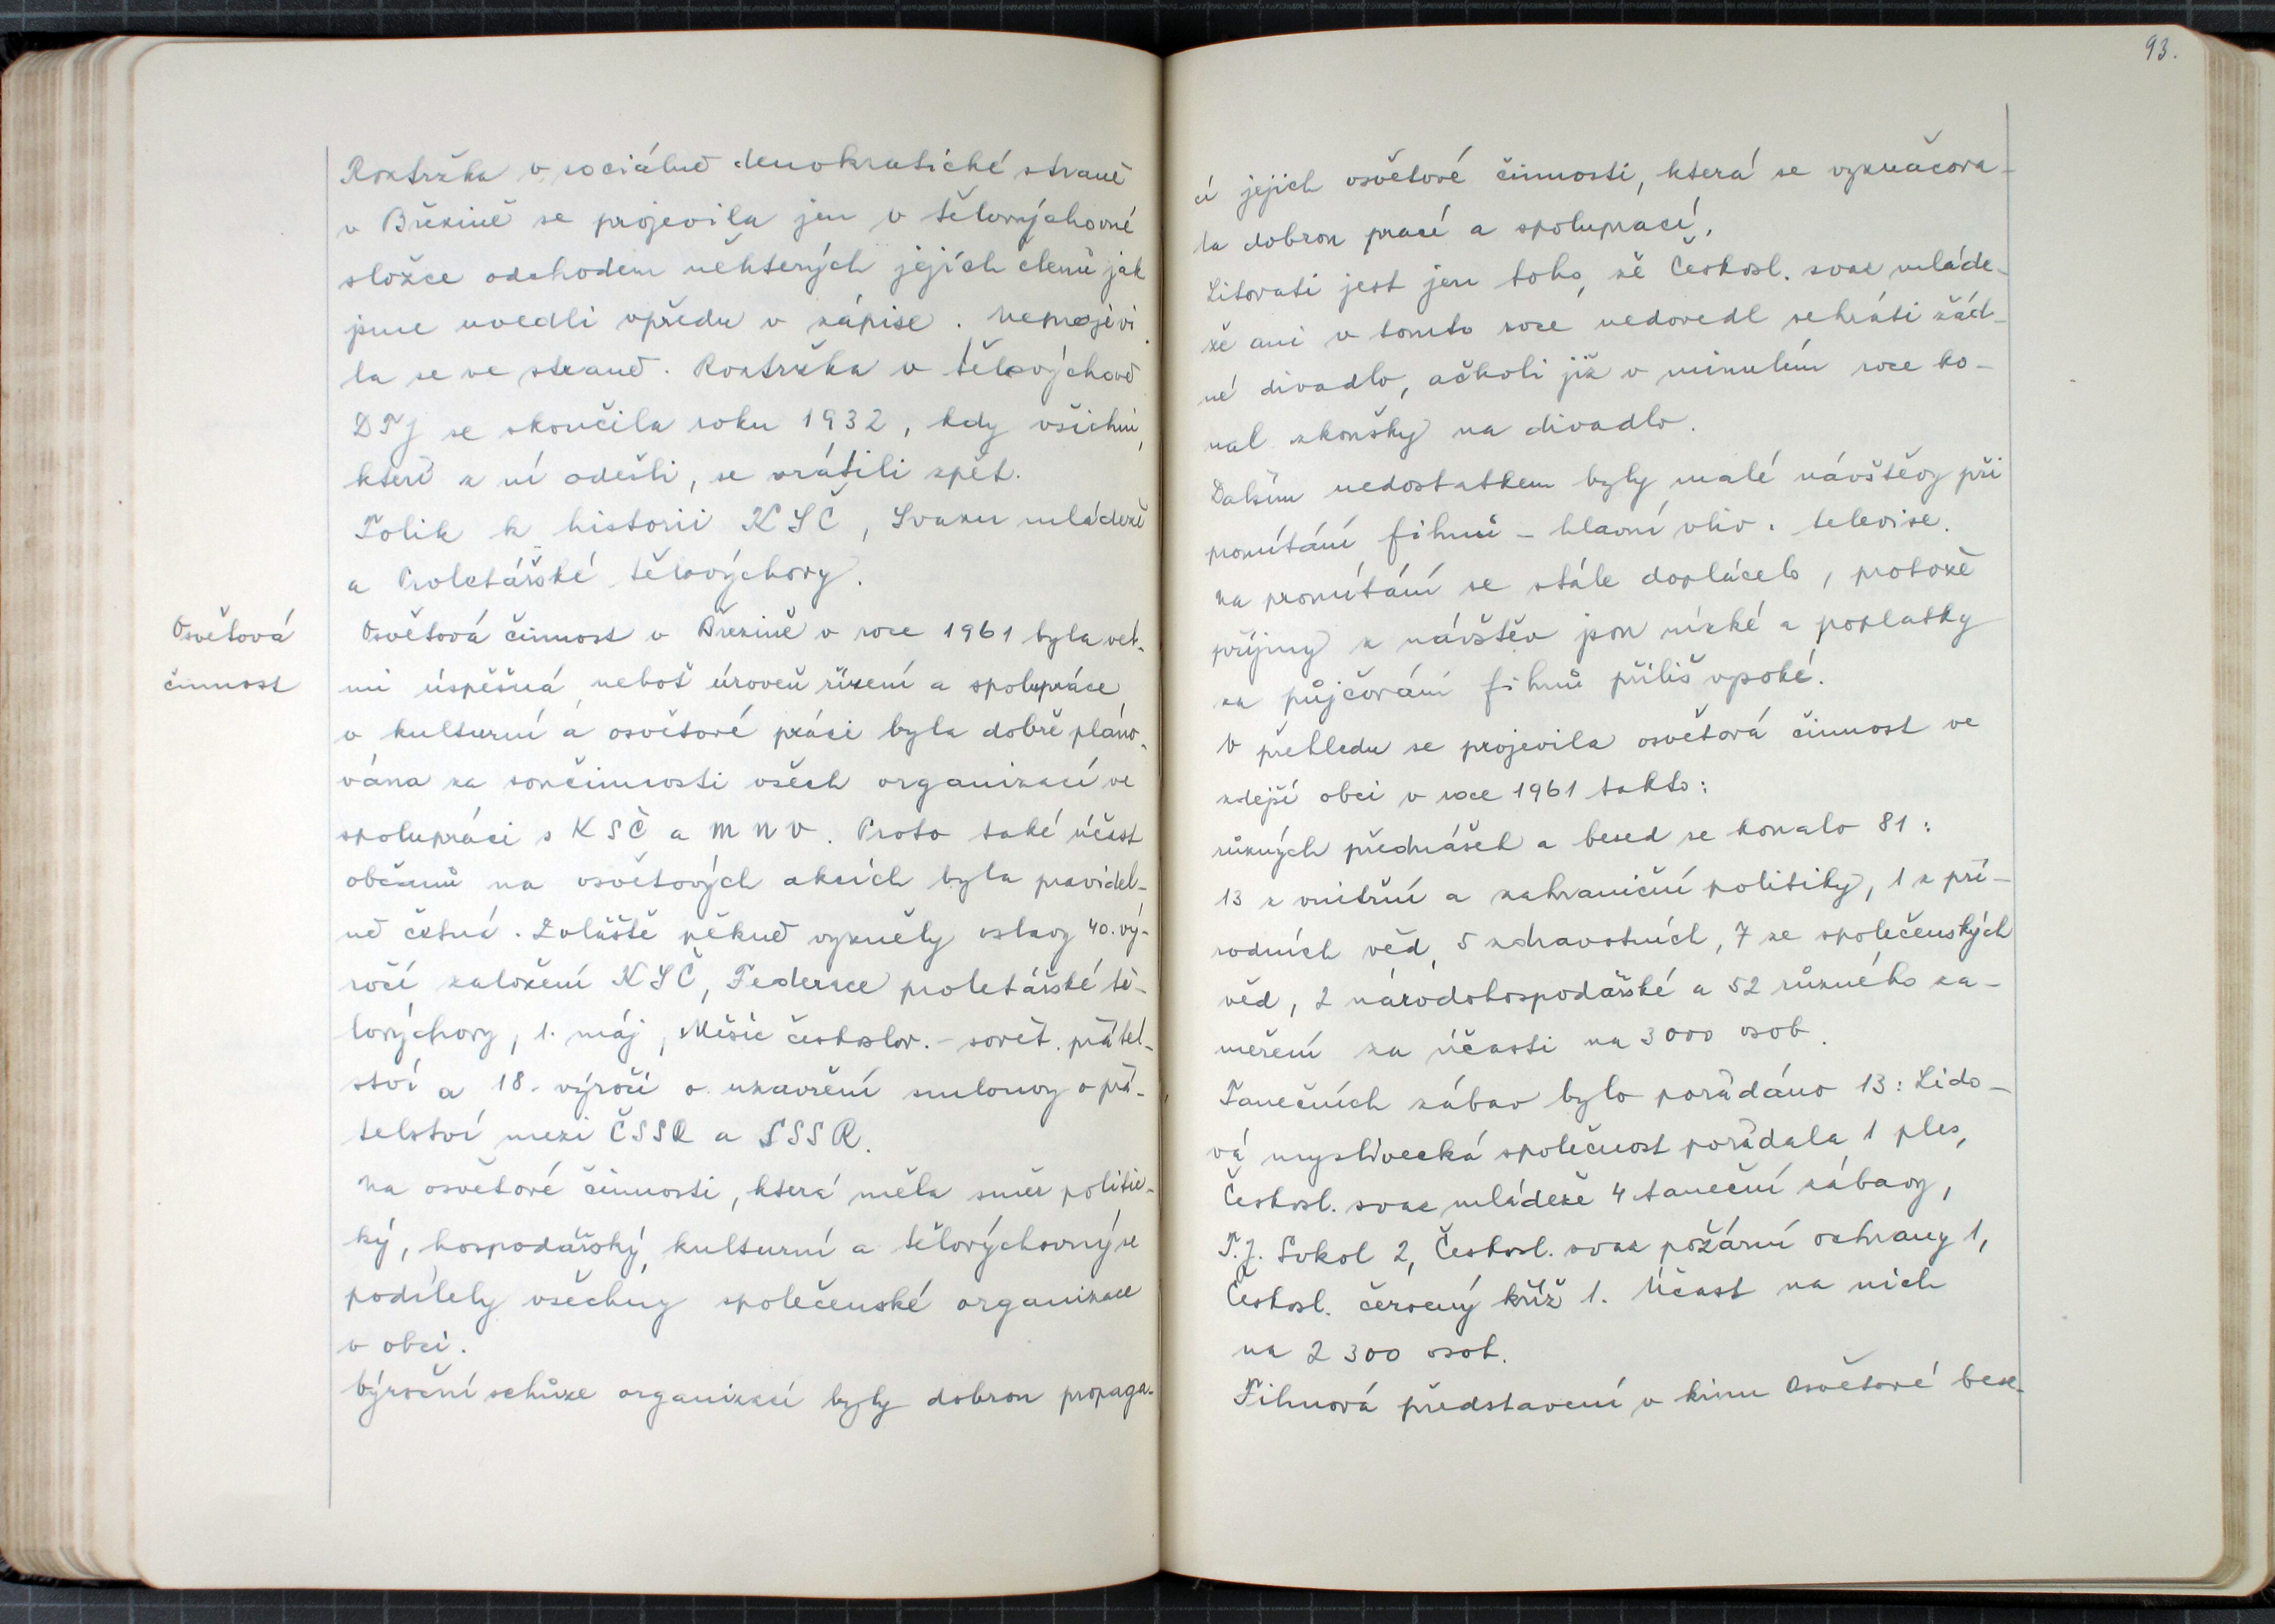 Roztržka v sociálně demokratické straně
v Březině se projevila jen v tělovýchovné
složce odchodem některých jejích členů jak
jsme uvedli vpředu v zápise. Neprojevi
la se ve straně. Roztržka v tělovýchově
DTJ se skončila roku 1932, kdy všichni,
kteří z ní odešli, se vrátili zpět.
Tolik k historii KSČ, Svazu mládeže
a Proletářské tělovýchovy.
Osvětová
činnost
Osvětová činnost v Březině v roce 1961 byla vel-
mi úspěšná, neboť úroveň řízení a spolupráce
v kulturní a osvětové práci byla dobře pláno-
vána za součinnosti všech organizací ve
spolupráci s KSČ a MNV. Proto také účast
občanů na osvětových akcích byla pravidel-
ně četná. Zvláště pěkně vyzněly oslavy 40. vý-
ročí založení KSČ, Federace proletářské tě-
lovýchovy, 1. máj, Měsíc českoslov.- sovět. přátel-
ství a 18. výročí o uzavření smlouvy o přá-
telství mezi ČSSR a SSSR.
Na osvětové činnosti, která měla směr politic-
ký, hospodářský, kulturní a tělovýchovný se
podílely všechny společenské organizace
v obci.
Výroční schůze organizací byly dobrou propaga-
93.
cí jejich osvětové činnosti, která se vyznačova-
la dobrou prací a spoluprací.
Litovati jest jen toho, že Českosl. svaz mláde-
že ani v tomto roce nedovedl sehráti žád-
né divadlo, ačkoli již v minulém roce ko-
nal zkoušky na divadlo.
Dalším nedostatkem byly malé návštěvy při
promítání filmů - hlavní vliv: televise.
Na promítání se stále doplácelo, protože
příjmy z návštěv jsou nízké a poplatky
za půjčování filmů příliš vysoké.
V přehledu se projevila osvětová činnost ve
zdejší obci v roce 1961 takto:
různých přednášek a besed se konalo 81:
13 z vnitřní a zahraniční politiky, 1 z pří-
rodních věd, 5 zdravotních, 7 ze společenských
věd, 2 národohospodářské a 52 různého za-
měření za účasti na 3000 osob.
Tanečních zábav bylo pořádáno 13: Lido-
vá myslivecká společnost pořádala 1 ples,
Českosl. svaz mládeže 4 taneční zábavy,
T.J. Sokol 2, Českosl. svaz požární ochrany 1,
Českosl. červený kříž 1. Účast na nich
na 2 300 osob.
Filmová představení v kinu Osvětové bese-